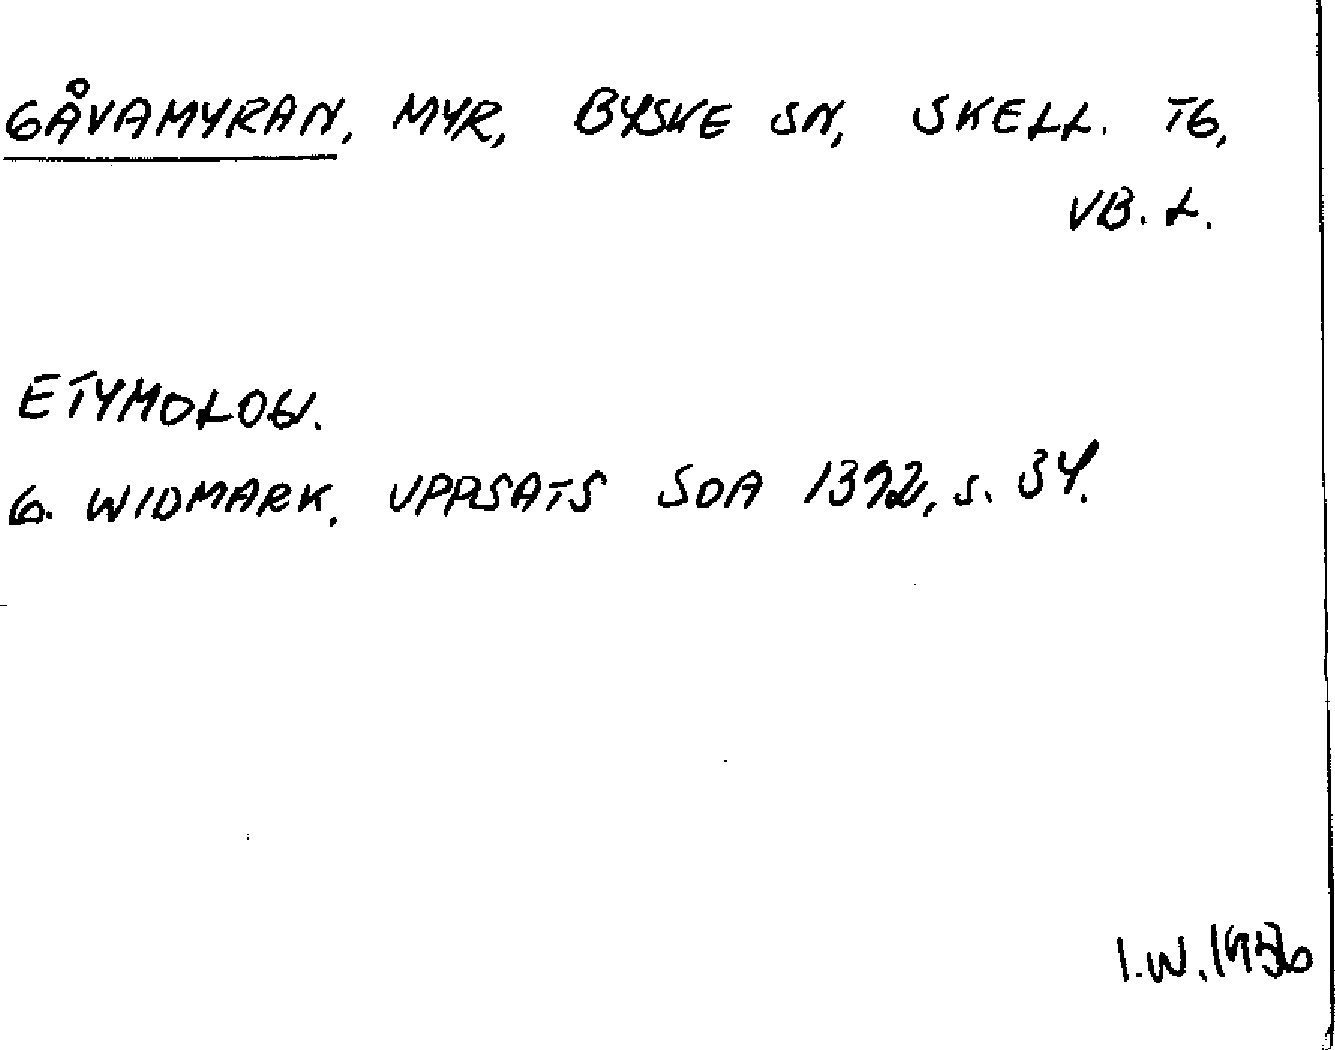 GÅVAMYRAN, MYR, BYSKE SN, SKELL. TG,
VB. L.
ETYMOLOGI.
G. WIDMARK, UPPSATS SOA 1392, s. 34.
I.W. 1956